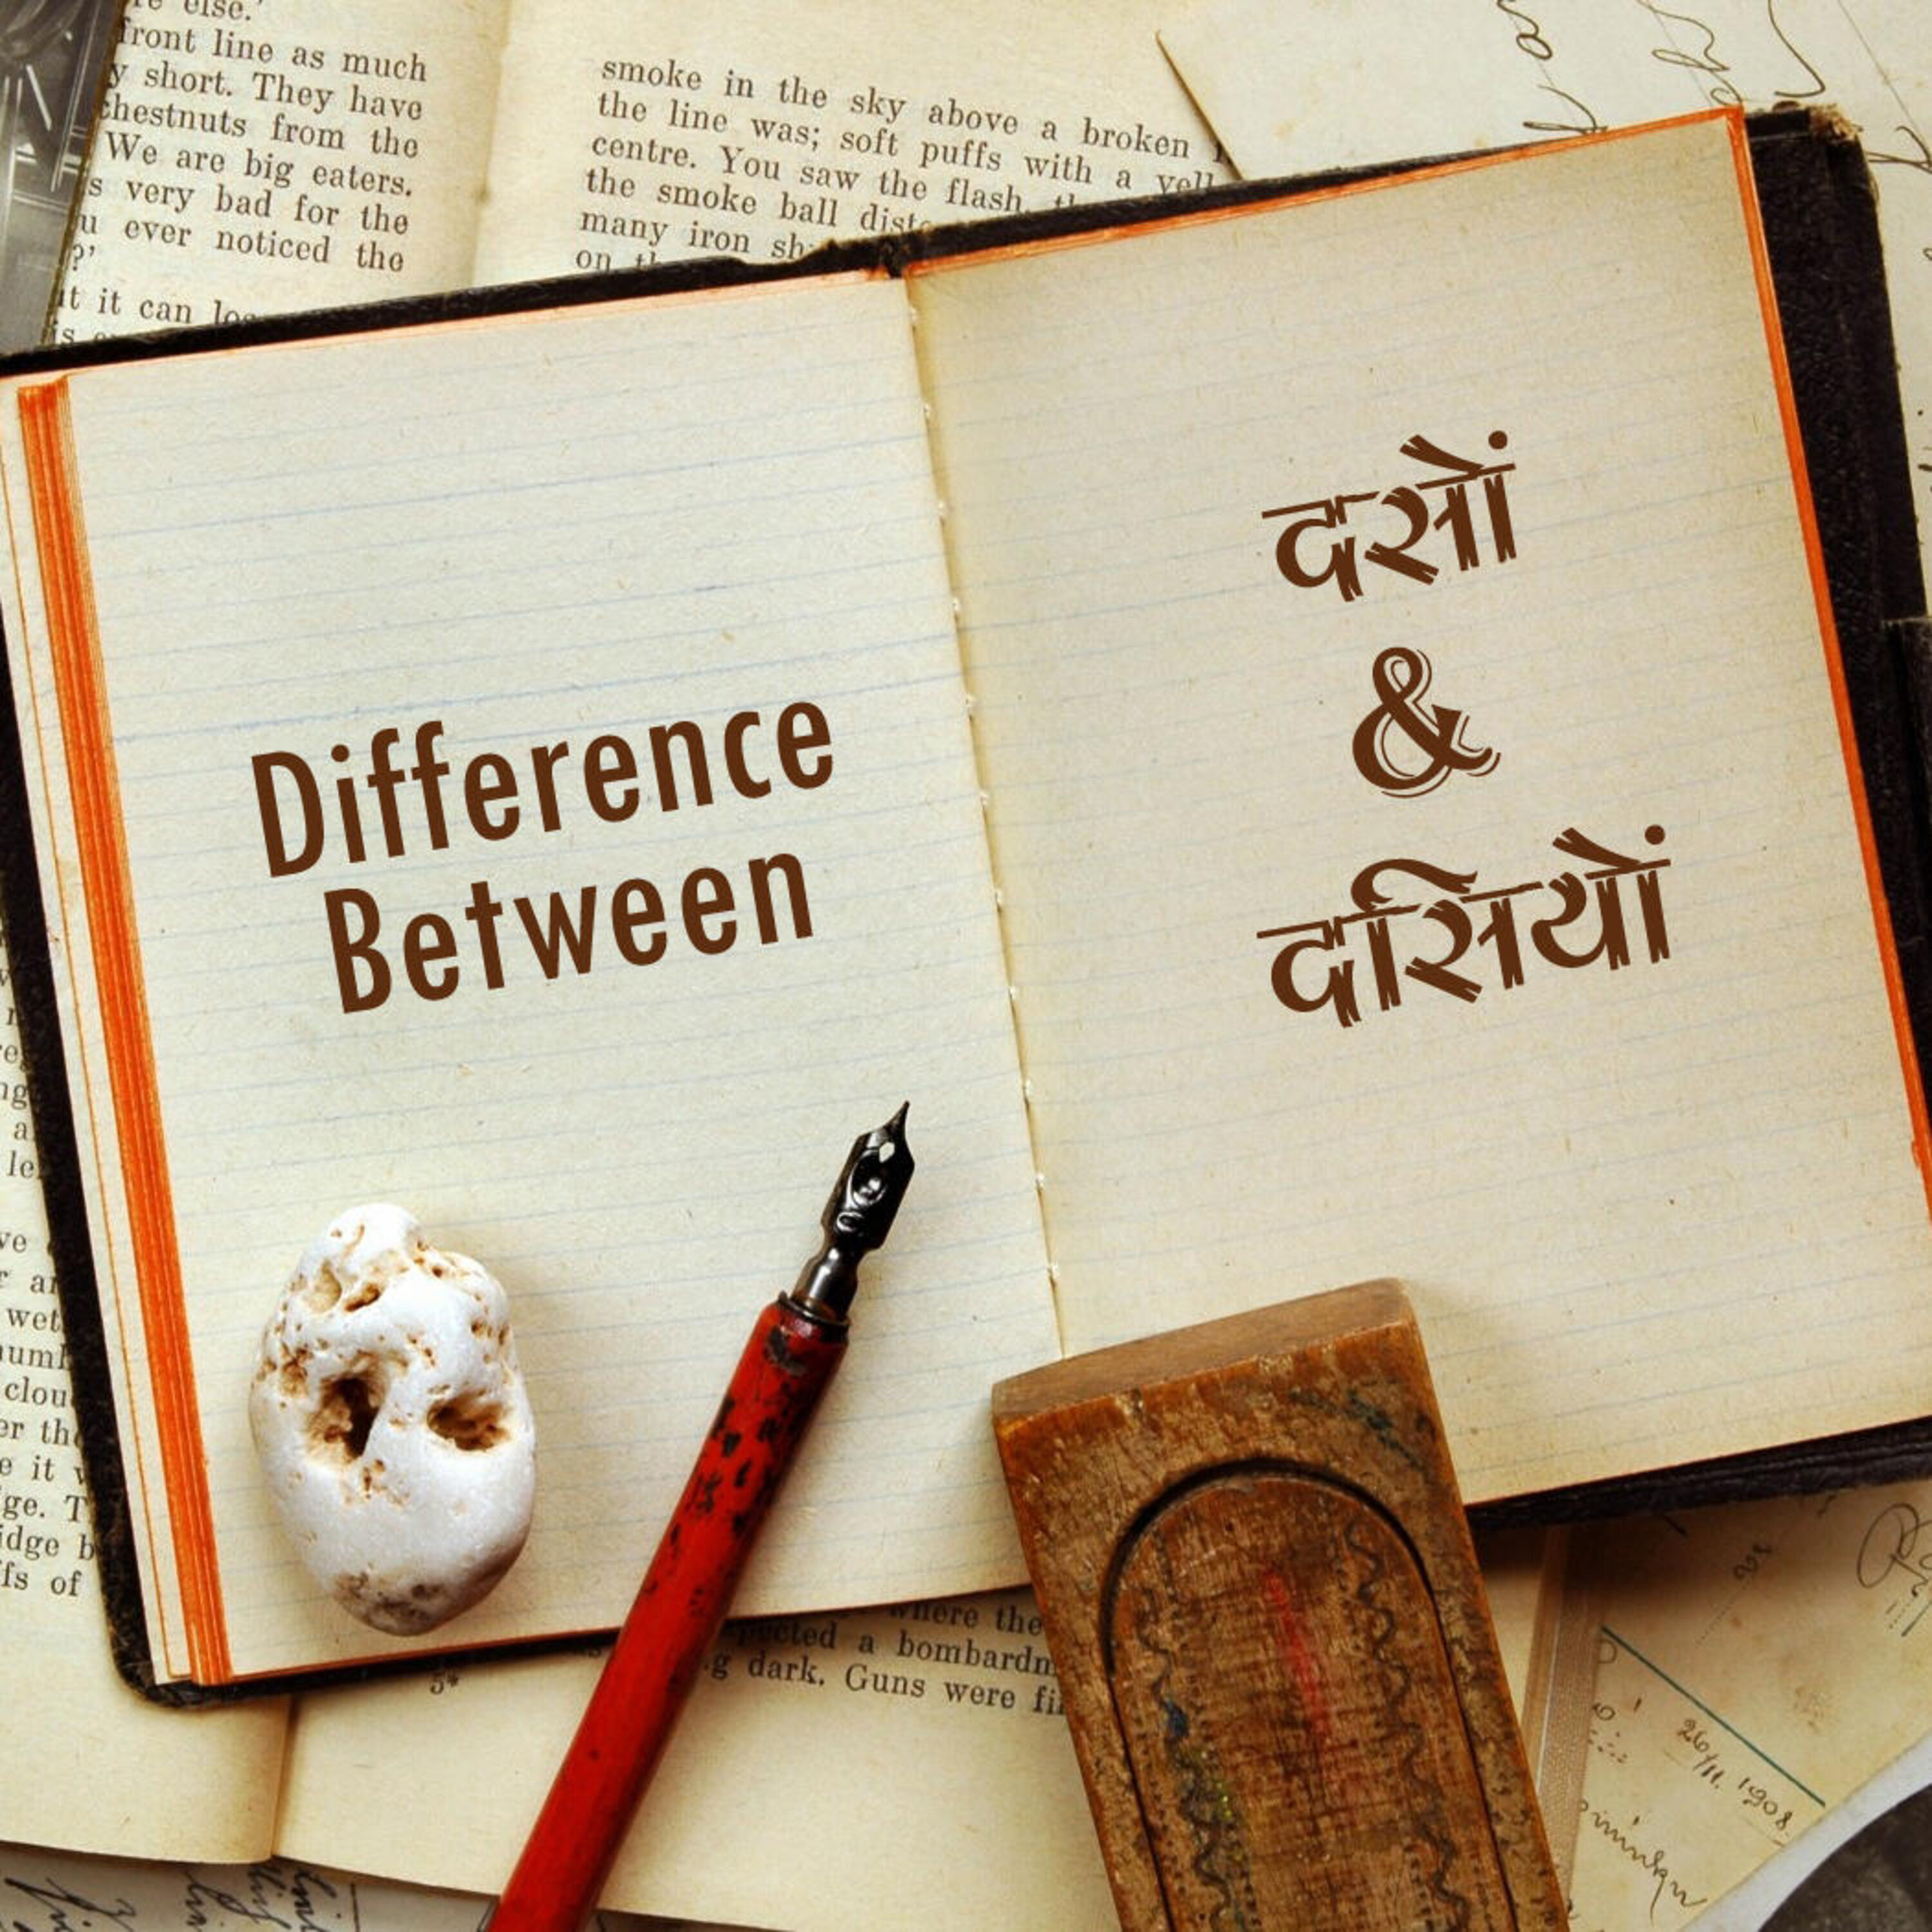 re else.'
front line as much
y short. They have
chestnuts from the
We are big eaters.
s very bad for the
u ever noticed the
?'
it it can
smoke in the sky above a broken
the line was; soft puffs with a yell
centre. You saw the flash,
the smoke ball
many iron
on
Difference
Between
दसों
&
दसियों
le
ve
wet
clou
er the
e it
ge. T
idge b
fs of
where the
a bombardm
g dark. Guns were fi
5*
26/11. 1908.